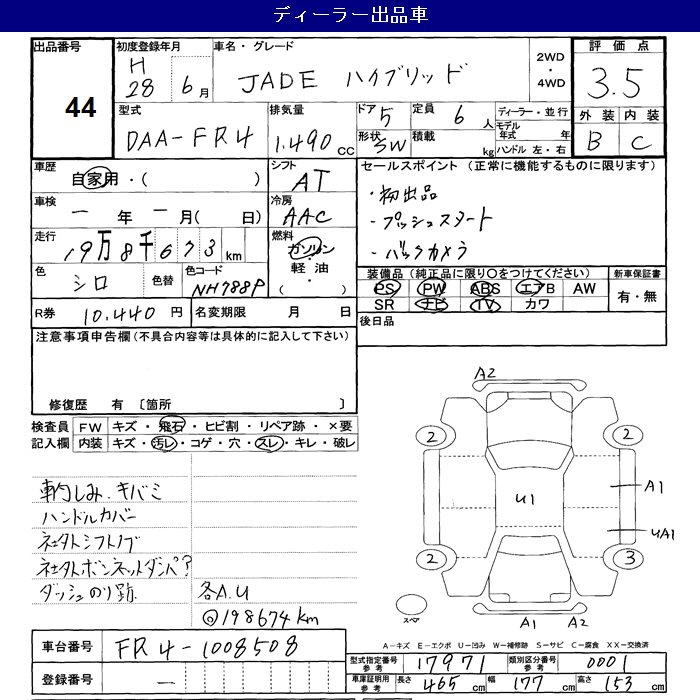 ディーラー出品車
出品番号 44
初度登録年月 H28年 6月
車名・グレード JADE ハイブリッド
2WD ・ 4WD
評価点 3.5
型式 DAA-FR4
排気量 1.490 cc
ドア 5
定員 6人
形状 SW
積載 kg
ディーラー・並行
モデル年式 年
ハンドル 左・右
外装 内装
B C
車歴 自家用・( )
シフト AT
セールスポイント (正常に機能するものに限ります)
・初出品
・プッシュスタート
・バックカメラ
車検 ー年 ー月( 日)
冷房 AAC
走行 19万8千673km
燃料 ガソリン・軽油・( )
色 シロ
色替
色コード NH788P
装備品 (純正品に限り○をつけてください)
新車保証書
PS PW ABS エアB AW
有・無
SR ナビ TV カワ
R券 10.440 円
名変期限 月 日
後日品
注意事項申告欄(不具合内容等は具体的に記入して下さい)
修復歴 有 〔箇所 〕
検査員記入欄
FW キズ・飛石・ヒビ割・リペア跡・×要
内装 キズ・汚レ・コゲ・穴・スレ・キレ・破レ
車内しみ.キバミ
ハンドルカバー
社外シフトノブ
社外ボンネットダンパ?
ダッシュのり跡.
各A.U
◎198674km
A2
2 2
U1
A1
UA1
2 3
スペア
A1 A2
A-キズ E-エクボ U-凹み W-補修跡 S-サビ C-腐食 XX-交換済
車台番号 FR4-1008508
登録番号 ー
型式指定番号 参考 17971
類別区分番号 参考 0001
車庫証明用 参考 長さ 465 cm 幅 177 cm 高さ 153 cm